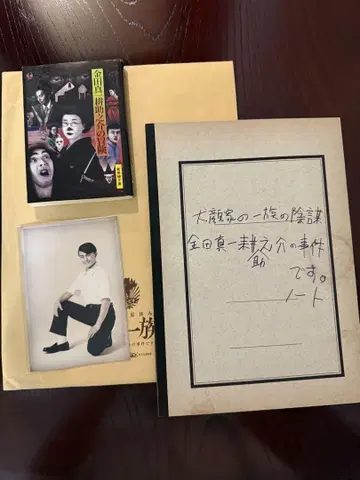 金田真一耕助之介の冒険
犬顔家の一族の陰謀
金田真一耕之介の事件
助
です。
ノート
一族